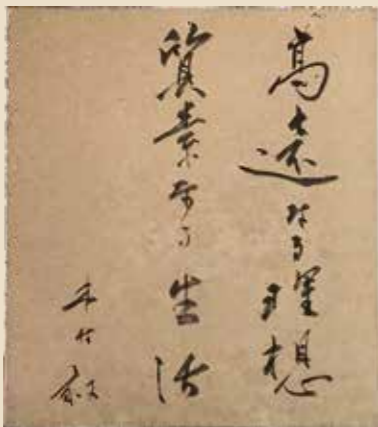 高遠なる理想
質素なる生活